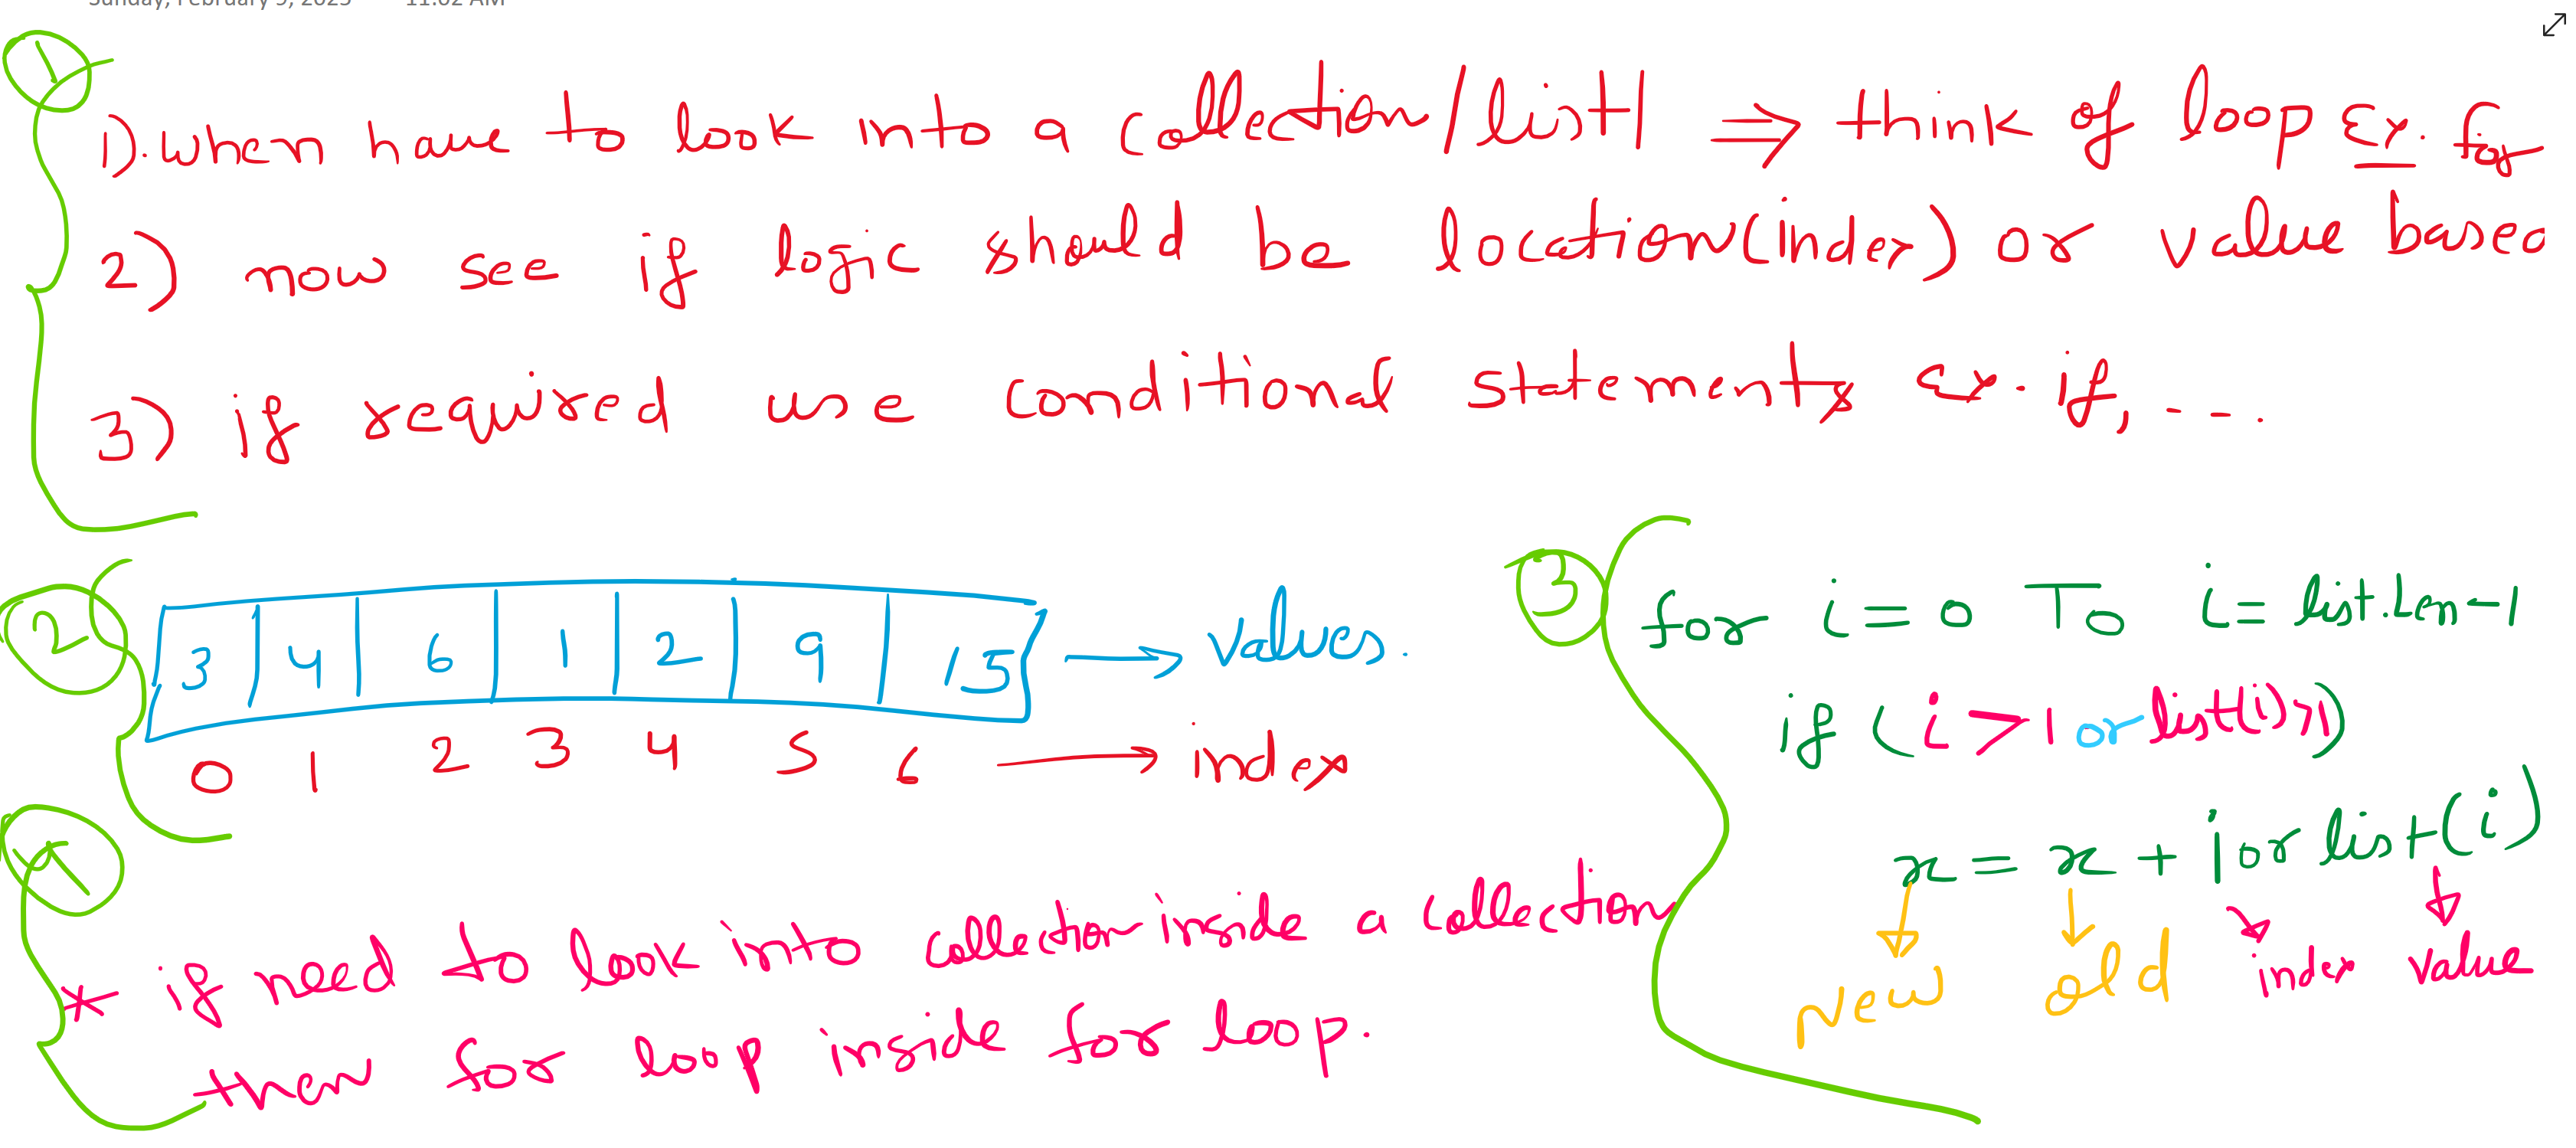 Sunday, February 9, 2025 11:02 AM
1
1). when have to look into a collection/list ⇒ think of loop Ex. for
2) now see if logic should be location(index) or value based
3) if required use conditional statements Ex. if, ....
2
3 4 6 1 2 9 15 → values.
0 1 2 3 4 5 6 → index
3
for i = 0 To i = list.Len-1
if (i > 1 or list(i)>1)
x = x + i or list(i)
New old index value
* if need to look into collection inside a collection
then for loop inside for loop.